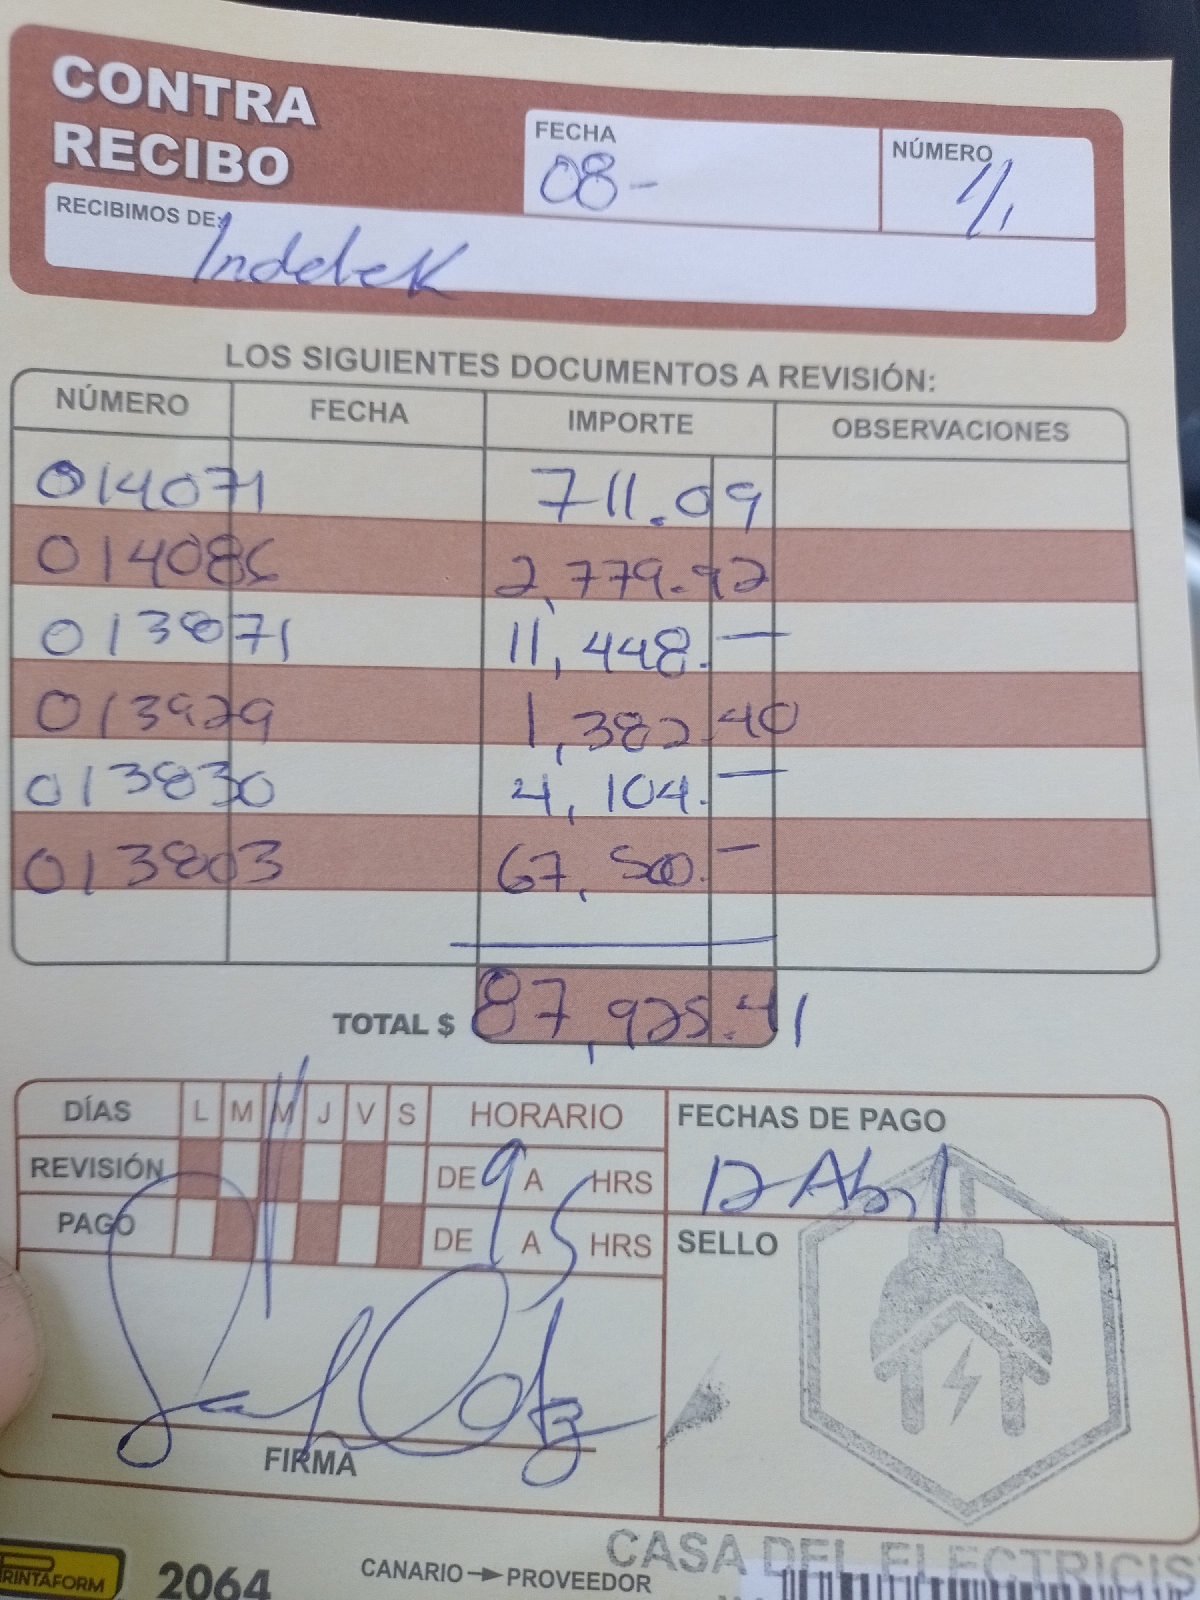 CONTRA
RECIBO
FECHA
08-
NÚMERO
1/1
RECIBIMOS DE:
Indelek
LOS SIGUIENTES DOCUMENTOS A REVISIÓN:
NÚMERO FECHA IMPORTE OBSERVACIONES
014071 711.09
014086 2,779.92
013871 11,448.—
013929 1,382.40
013830 4,104.—
013803 67,500.—
TOTAL $ 87,925.41
DÍAS L M M J V S HORARIO
REVISIÓN DE 9 A 5 HRS
PAGO DE A HRS
FECHAS DE PAGO
12 Abril
SELLO
FIRMA
PRINTAFORM 2064 CANARIO→PROVEEDOR
CASA DEL ELECTRICIS